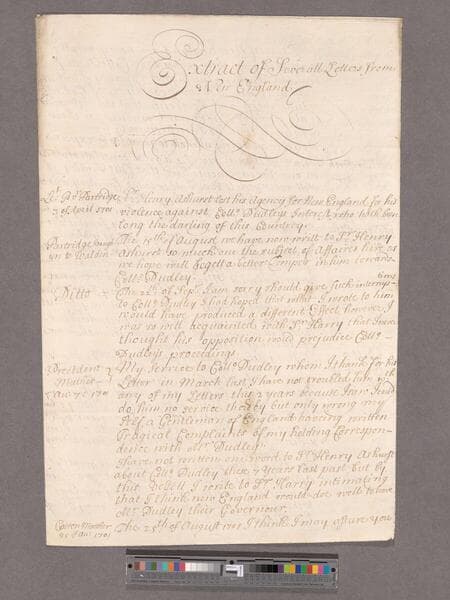 Extract of Severall Letters from
New England
Lt. Partridge
3 of Aprill 1701
Sr. Henry Ashurst lost his Agency for New England for his
violence against Coll. Dudleys Interest, who hath been
long the darling of this Country.
Partridge
The 15th of August we have now writt to Sr. Henry
Ashurst so much on the subject of Affaires here, as
we hope will begett a better Temper in him towards
Coll. Dudley
Ditto
The 22d of Sept. I am sorry should give such
to Coll. Dudley I had hoped that what I wrote to him
would have produced a different Effect however I
was so well acquainted with Sr. Harry that I never
thought his opposition would prejudice Coll.
Dudleys proceedings
President
Mather
My service to Coll. Dudley whom I thank for his
Letter in March last, I have not troubled him with
any of my Letters this 2 years because I can
do him no service thereby but only wrong my
self, a Gentleman of England having written
Tragical Complaints of my holding Correspon-
dence with Mr. Dudley.
I have not written one word to Sr. Henry Ashurst
about Coll. Dudley these 7 years last past but by
this Vessell I wrote to Sr. Harry intimating
that I think new England would do well to have
Mr. Dudley their Governour.
Cotton Mather
The 25th of August 1701 I think I may assure you